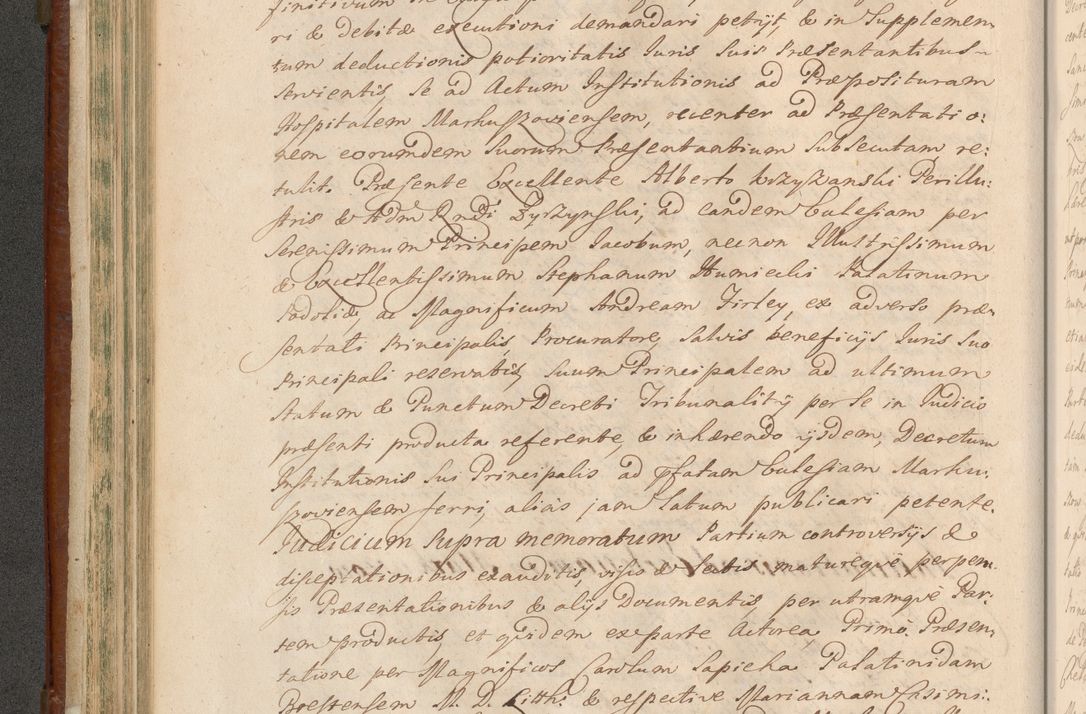 finitivum in
ri & debitæ executioni demandari petijt, & in Supplemen
tum deductionis potioritatis Juris Suis Præsentantibus
servientis, se ad Actum Institutionis ad Præposituram
Hospitalem Markuszoviensem, recenter ad Præsentatio:
nem eorumdem Suorum Præsentantium Subsecutam re:
tulit. Præsente Excellente Alberto Krzyszanski Perillu:
stris & Adm Rndi Zyrzynski, ad eandem Ecclesiam per
Serenissimum Principem Jacobum, necnon Illustrissimum
& Excellentissimum Stephanum Humiecki Palatinum
Podoliæ ac Magnificum Andream Firley, ex adverso præ
sentati Principalis, Procuratore, Salvis beneficijs Juris Suo
Principali reservatis, Suum Principalem ad ultimum
Statum & Punctum Decreti Tribunalitij per Se in Judicio
præsenti producta referente, & inhærendo ijsdem, Decretum
Institutionis Sui Principalis ad pfatam Ecclesiam Marku:
szoviensem ferri, aliàs jam latum publicari petente.
Judicium Supra memoratum Partium controversijs &
disceptationibus exauditis, visis & lectis matureque perpen
sis Præsentationibus & alijs Documentis, per utramque Par:
tem productis, et quidem ex parte Actorea Primò. Præsen
tatione per Magnificos Carolum Sapieha Palatinidam
Brestensem M. D. Litth: & respective Mariannam Casimi: